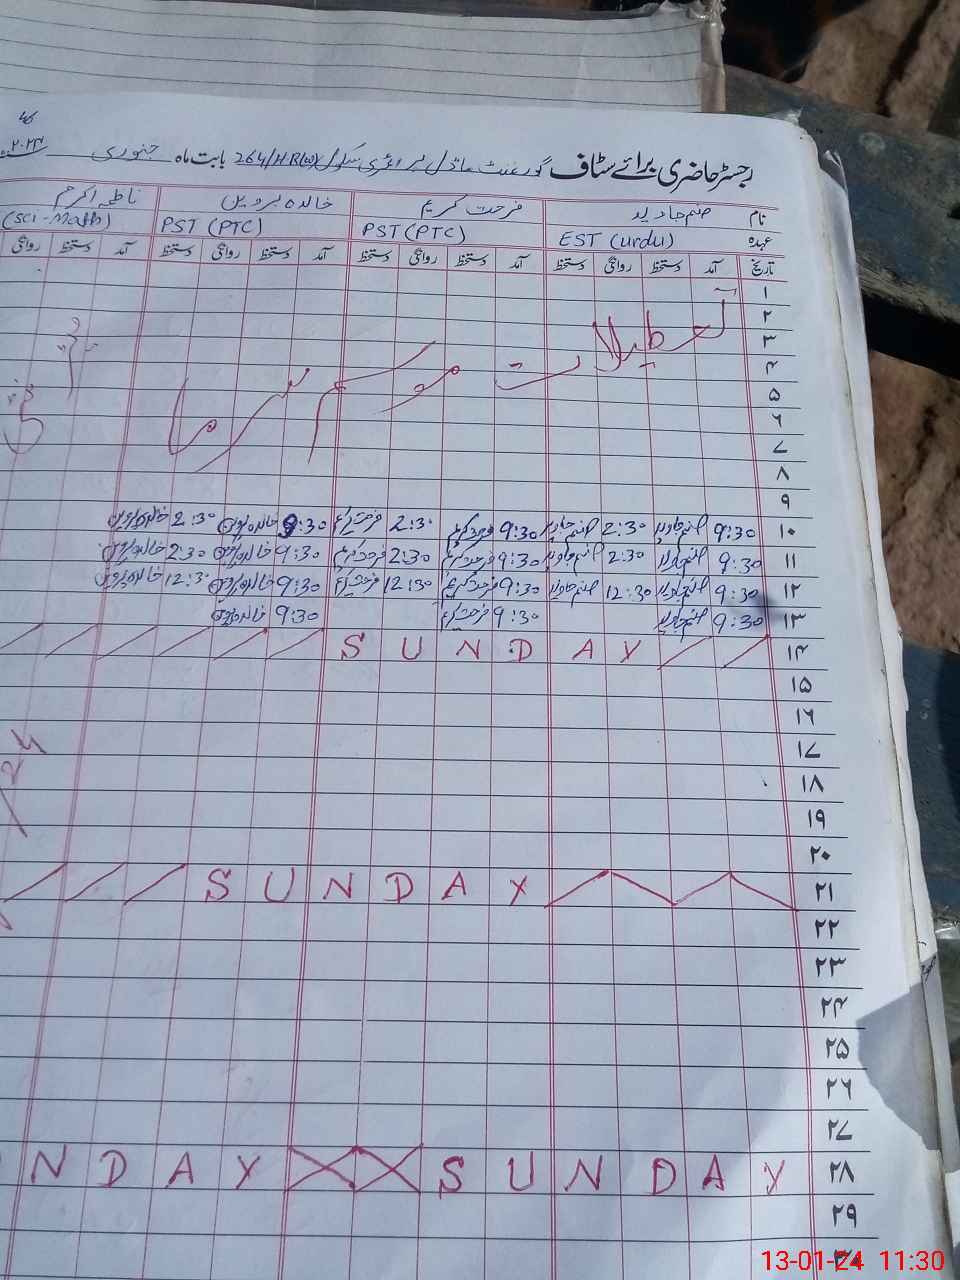 رجسٹر حاضری برائے سٹاف گورنمنٹ ماڈل پرائمری سکول 264/HR(W) بابت ماہ جنوری ۲۰۲۴ء
نام صنم جاوید فرحت کریم خالدہ پروین ناظمہ اکرم
عہدہ EST (urdu) PST (PTC) PST (PTC) (Sci-Math)
تاریخ آمد دستخط روانگی دستخط آمد دستخط روانگی دستخط آمد دستخط روانگی دستخط آمد دستخط روانگی
۱
۲
۳
۴
۵
۶
۷
۸
۹
تعطیلات موسم سرما
۱۰ 9:30 صنم جاوید 2:30 صنم جاوید 9:30 فرحت کریم 2:30 فرحت کریم 9:30 خالدہ پروین 2:30 خالدہ پروین
۱۱ 9:30 صنم جاوید 2:30 صنم جاوید 9:30 فرحت کریم 2:30 فرحت کریم 9:30 خالدہ پروین 2:30 خالدہ پروین
۱۲ 9:30 صنم جاوید 12:30 صنم جاوید 9:30 فرحت کریم 12:30 فرحت کریم 9:30 خالدہ پروین 12:30 خالدہ پروین
۱۳ 9:30 صنم جاوید 9:30 فرحت کریم 9:30 خالدہ پروین
۱۴ SUNDAY
۱۵
۱۶
۱۷
۱۸
۱۹
۲۰
۲۱ SUNDAY
۲۲
۲۳
۲۴
۲۵
۲۶
۲۷
۲۸ NDAY SUNDAY
۲۹
۳۰
13-01-24 11:30